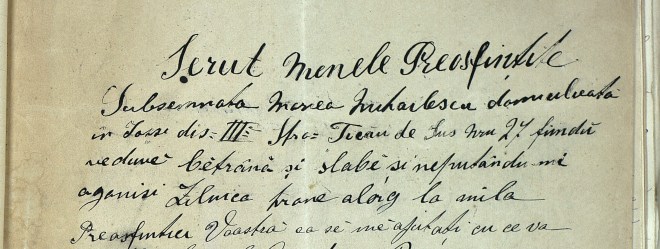 Serut Menele Preosfintite
Subsemnata Marea Muhailescu domiculiata
in Iassi dis= III= Stra= Ticau de Sus Nru 27 fiindu
veduvĕ bĕtrănă și slabĕ, și neputăndu-mi
agonisi Zilnica pane alorg la mila
Preosfintiei Voastră ca sĕ me ajutați cu ce va